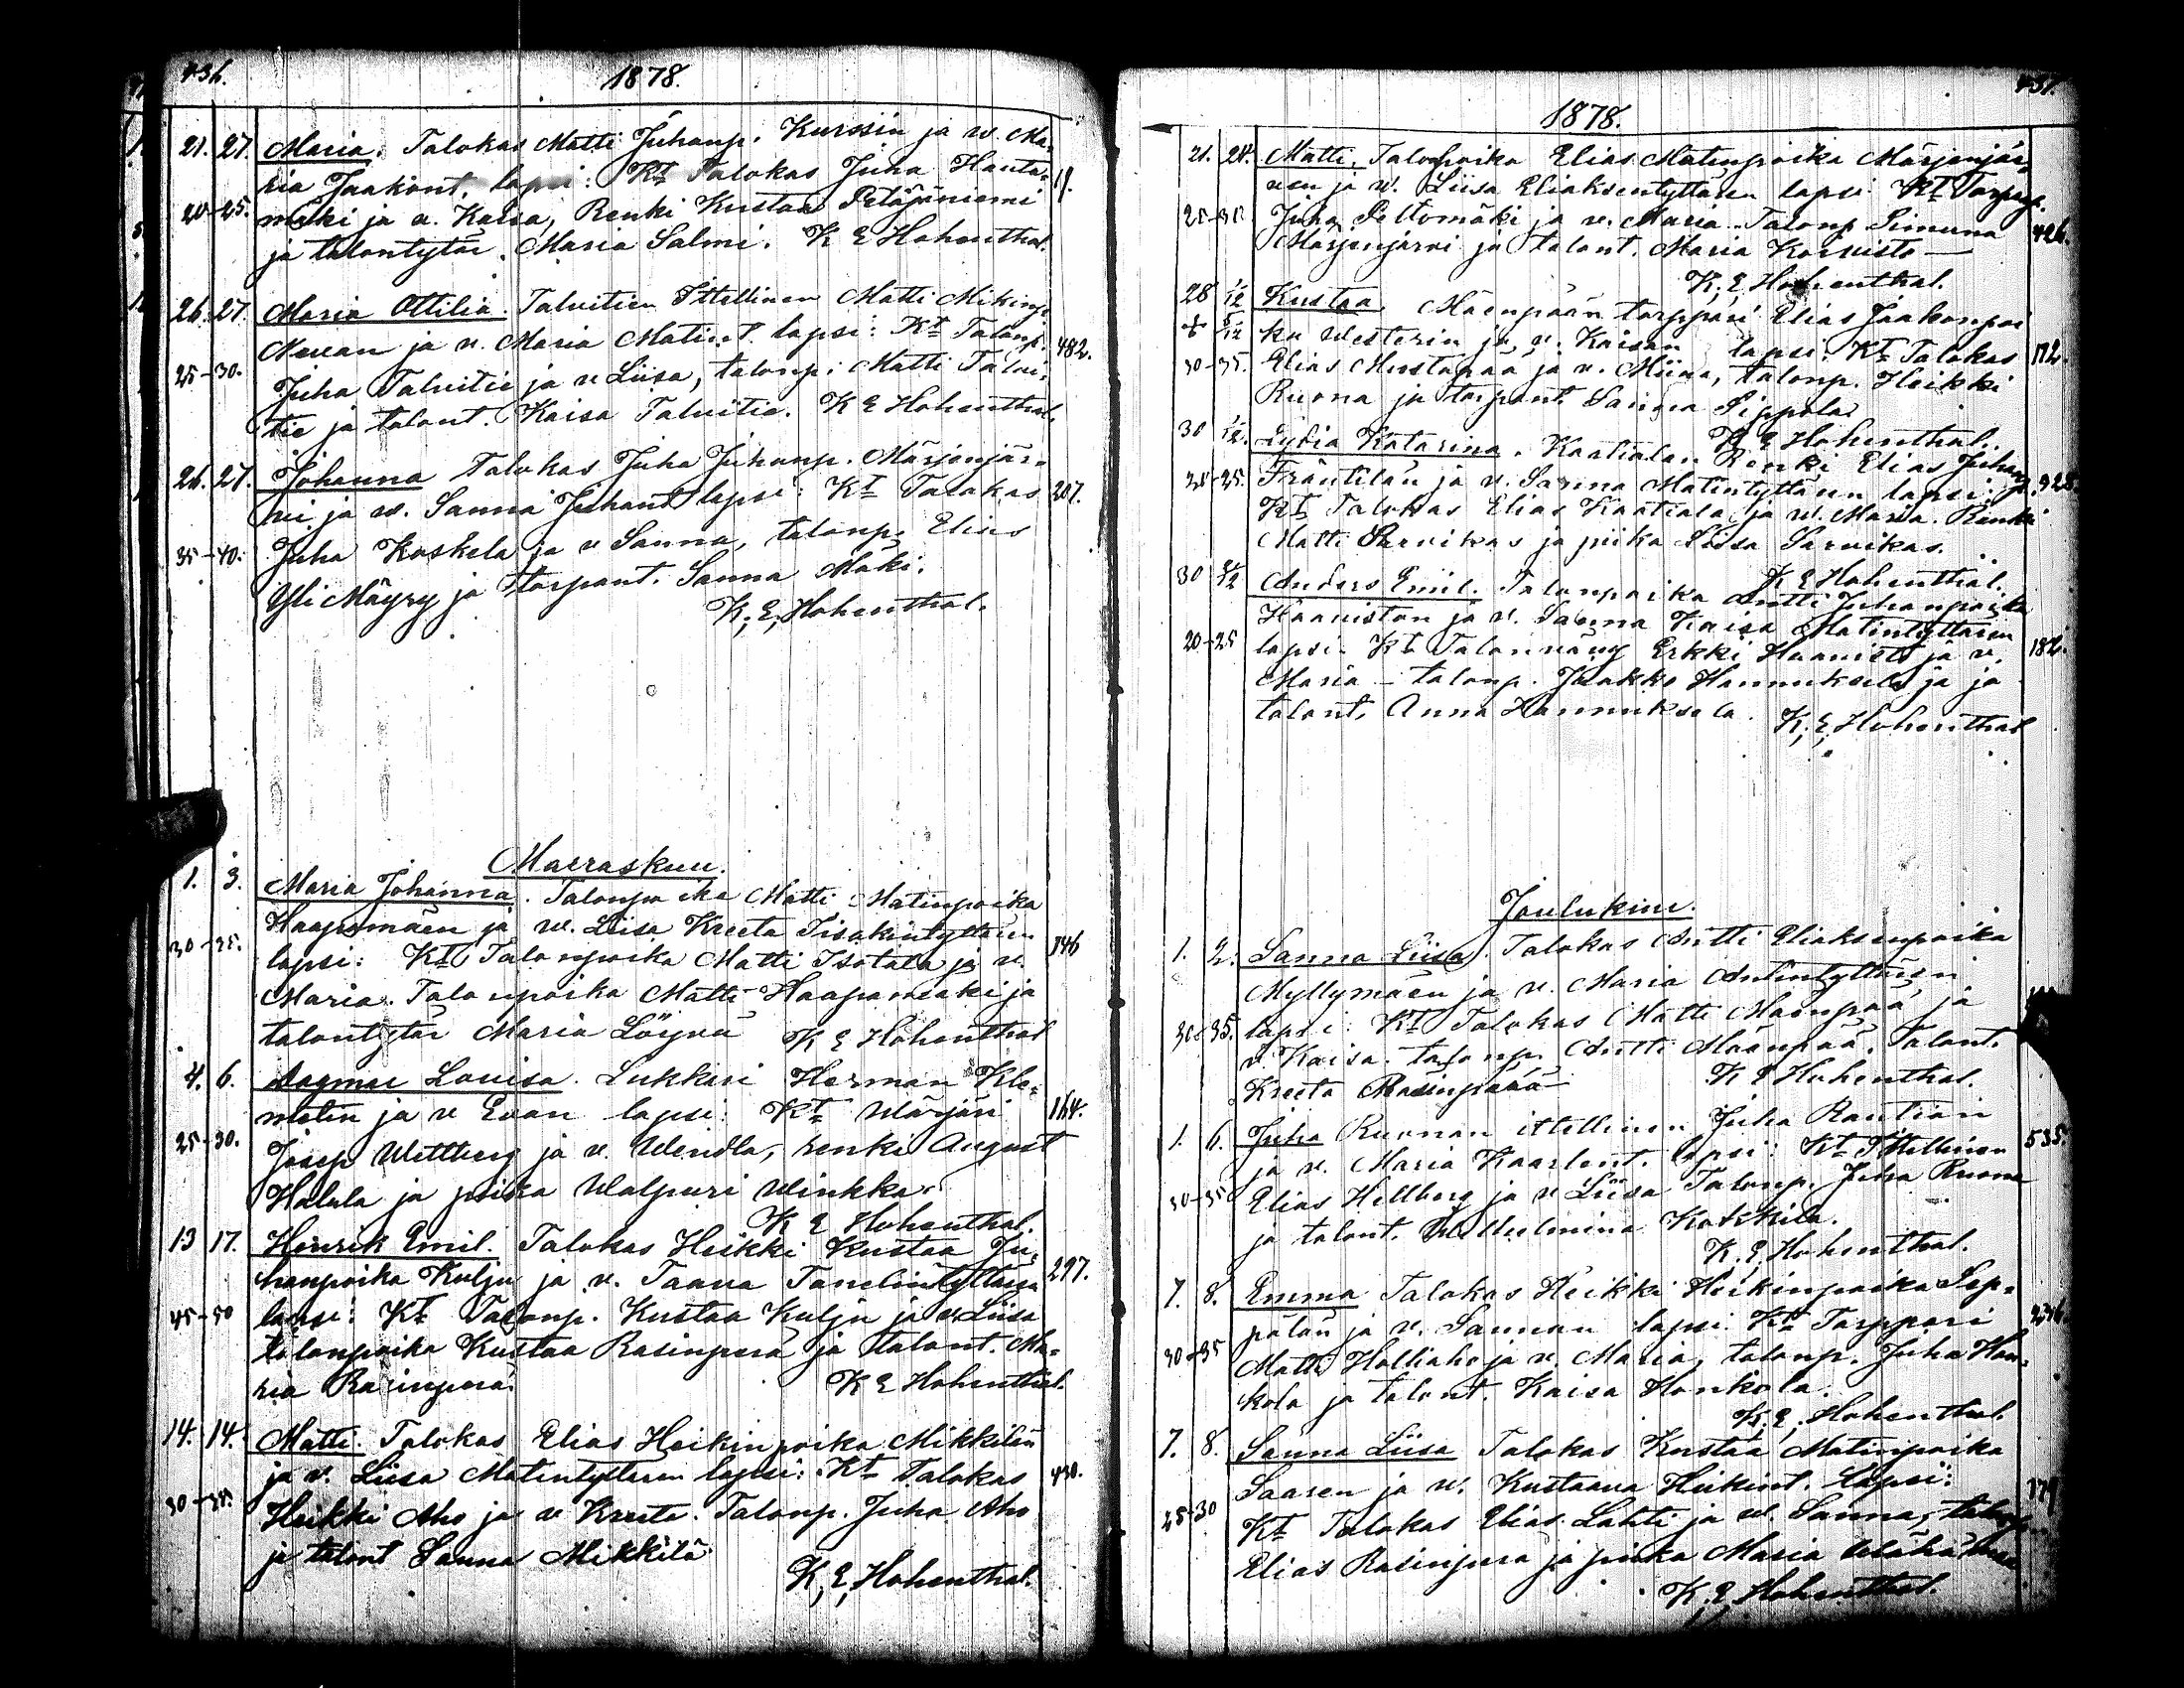 436.
1878.
21. 27. Maria. Talokas Matti Juhanp. Kurssin ja w. Ma-
ria Jaakönt. lapsi: Kt Talokas Juha Hauta- 11.
20-25. mäki ja w. Kaisa, Renki Kustaa Petäjäniemi
ja talontytär Maria Salmi. K E Hohenthal.
26. 27. Maria Ottilia. Talvitien Ittellinen Matti Mikinp.
Nevan ja w. Maria Matint. lapsi: Kt Talonp. 482.
25-30. Juha Talvitie ja w Liisa, talonp: Matti Talvi-
tie ja talont. Kaisa Talvitie. K E Hohenthal.
26. 27. Johanna Talokas Juha Juhanp. Märjenjär-
vi ja w. Sanna Juhant lapsi: Kt Talokas 207.
35-40. Juha Koskela ja w Sanna, talonp. Elias
Yli Mäyry ja torpant. Sanna Mäki.
K. E. Hohenthal.
Marraskuu.
1. 3. Maria Johanna. Talonpoika Matti Matinpoika
Haapamäen ja w. Liisa Kreeta Iisakintyttären
30-35. lapsi: Kt Talonpoika Matti Isotalo ja w. 146
Maria. Talonpoika Matti Haapamäki ja
talontytär Maria Löyvä K E Hohenthal
4. 6. Dagmar Lovisa. Lukkari Herman Kle-
metin ja w Evan lapsi: Kt Wärjäri 164.
25-30. Josep Wettberg ja w. Wendla, renki August
Halula ja piika Walpuri Winkka.
K E Hohenthal.
13 17. Henrik Emil. Talokas Heikki Kustaa Ju-
hanpoika Kulju ja w. Taava Tanelintyttären 297.
45-50 lapsi: Kt Talonp. Kustaa Kulju ja w Liisa
talonpoika Kustaa Rasinperä ja talont. Ma-
ria Rasinperä. K E Hohenthal.
14. 14. Matti. Talokas Elias Heikinpoika Mikkilän
ja w. Liisa Matintyttären lapsi: Kt Talokas 430.
30-35. Heikki Aho ja w Kreeta. Talonp. Juha Aho
ja talont Sanna Mikkilä
K. E. Hohenthal.
437.
1878.
21. 24. Matti. Talonpoika Elias Matinpoika Märjenjär-
ven ja w. Liisa Eliaksentyttären lapsi: Kt Torpp.
25-30. Juha Peltomäki ja w. Maria. Talonp Simuna 426.
Märjenjärvi ja talont. Maria Korvisto
K. E. Hohenthal.
28 1/12 Kustaa. Mäenpään torppari Elias Jaakonpoi
+ 5/12 ka Westerin ja w. Kaisan lapsi: Kt Talokas 172.
30-35. Elias Mustapää ja w. Miina, talonp. Heikki
Ruona ja torpant. Sanna Sippola.
K E Hohenthal.
30 1/12. Lydia Katarina. Kaatialan Renki Elias Juhanp.
20-25. Fräntilän ja w. Sanna Matintyttären lapsi: 328.
Kt Talokas Elias Kaatiala ja w. Maria. Renki
Matti Sarvikas ja piika Liisa Sarvikas.
K E Hohenthal.
30 2/12 Anders Emil. Talonpoika Antti Juhanpoika
Haaviston ja w. Sanna Kaisa Matintyttären
20-25 lapsi. Kt Talonvävy Erkki Haavisto ja w. 182.
Maria - talonp. Jaakko Hannuksela ja ja
talont. Anna Hannuksela. K. E. Hohenthal
Joulukuu.
1. 2. Sanna Liisa. Talokas Antti Eliaksenpoika
Myllymäen ja w. Maria Antintyttären
30-35. lapsi: Kt Talokas Matti Mäenpää ja
w. Kaisa. talonp. Antti Mäenpää. Talont.
Kreeta Rasinperä K E Hohenthal.
1. 6. Juha Ruonan ittellinen Juha Rantian
ja w. Maria Kaarlent. lapsi: Kt Ittellinen 535.
30-35 Elias Hellberg ja w Liisa Talonp. Juha Ruona
ja talont. Willelmina Kotkkila.
K. E. Hohenthal.
7. 8. Emma Talokas Heikki Heikinpoika Sep-
pälän ja w. Sannan lapsi: Kt Torppari 236
30-35 Matti Holliaho ja w. Maria, talonp. Juha Hon-
kola ja talont. Kaisa Honkola.
K. E. Hohenthal.
7. 8. Sanna Liisa Talokas Kustaa Matinpoika
Saaren ja w. Kustaava Heikint. lapsi: 779
25-30 Kt Talokas Elias Lahti ja w. Sanna, talonp.
Elias Rasinperä ja piika Maria
K. E. Hohenthal.